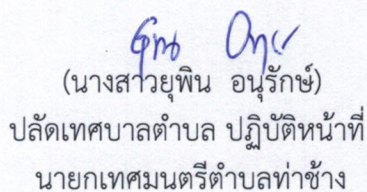 (นางสาวยุพิน อนุรักษ์)
ปลัดเทศบาลตำบล ปฏิบัติหน้าที่
นายกเทศมนตรีตำบลท่าช้าง